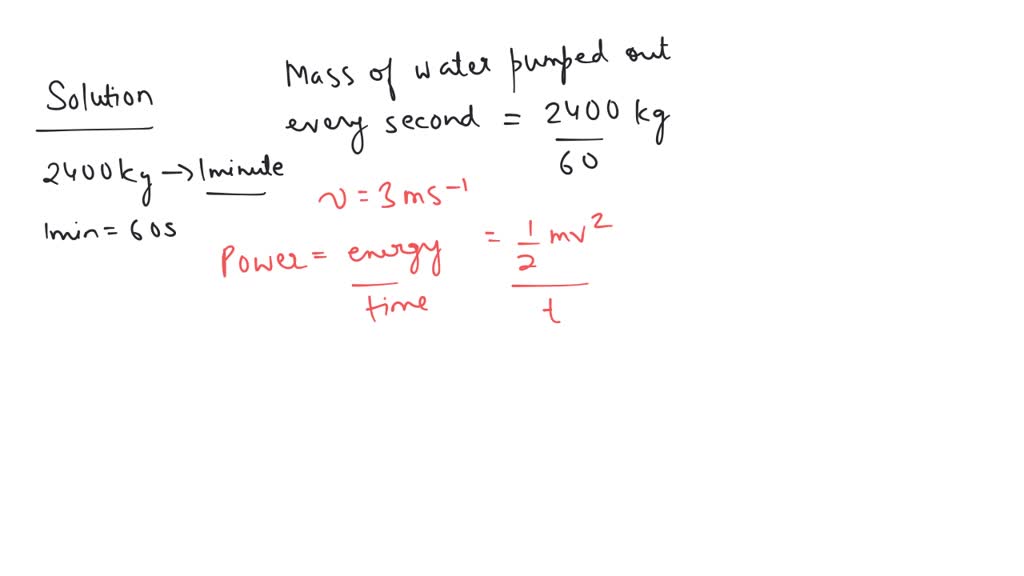 Solution
2400kg → 1minute
1min = 60s
Mass of water pumped out
every second = 2400 kg
60
v = 3 ms⁻¹
Power = energy = 1/2 mv²
time t